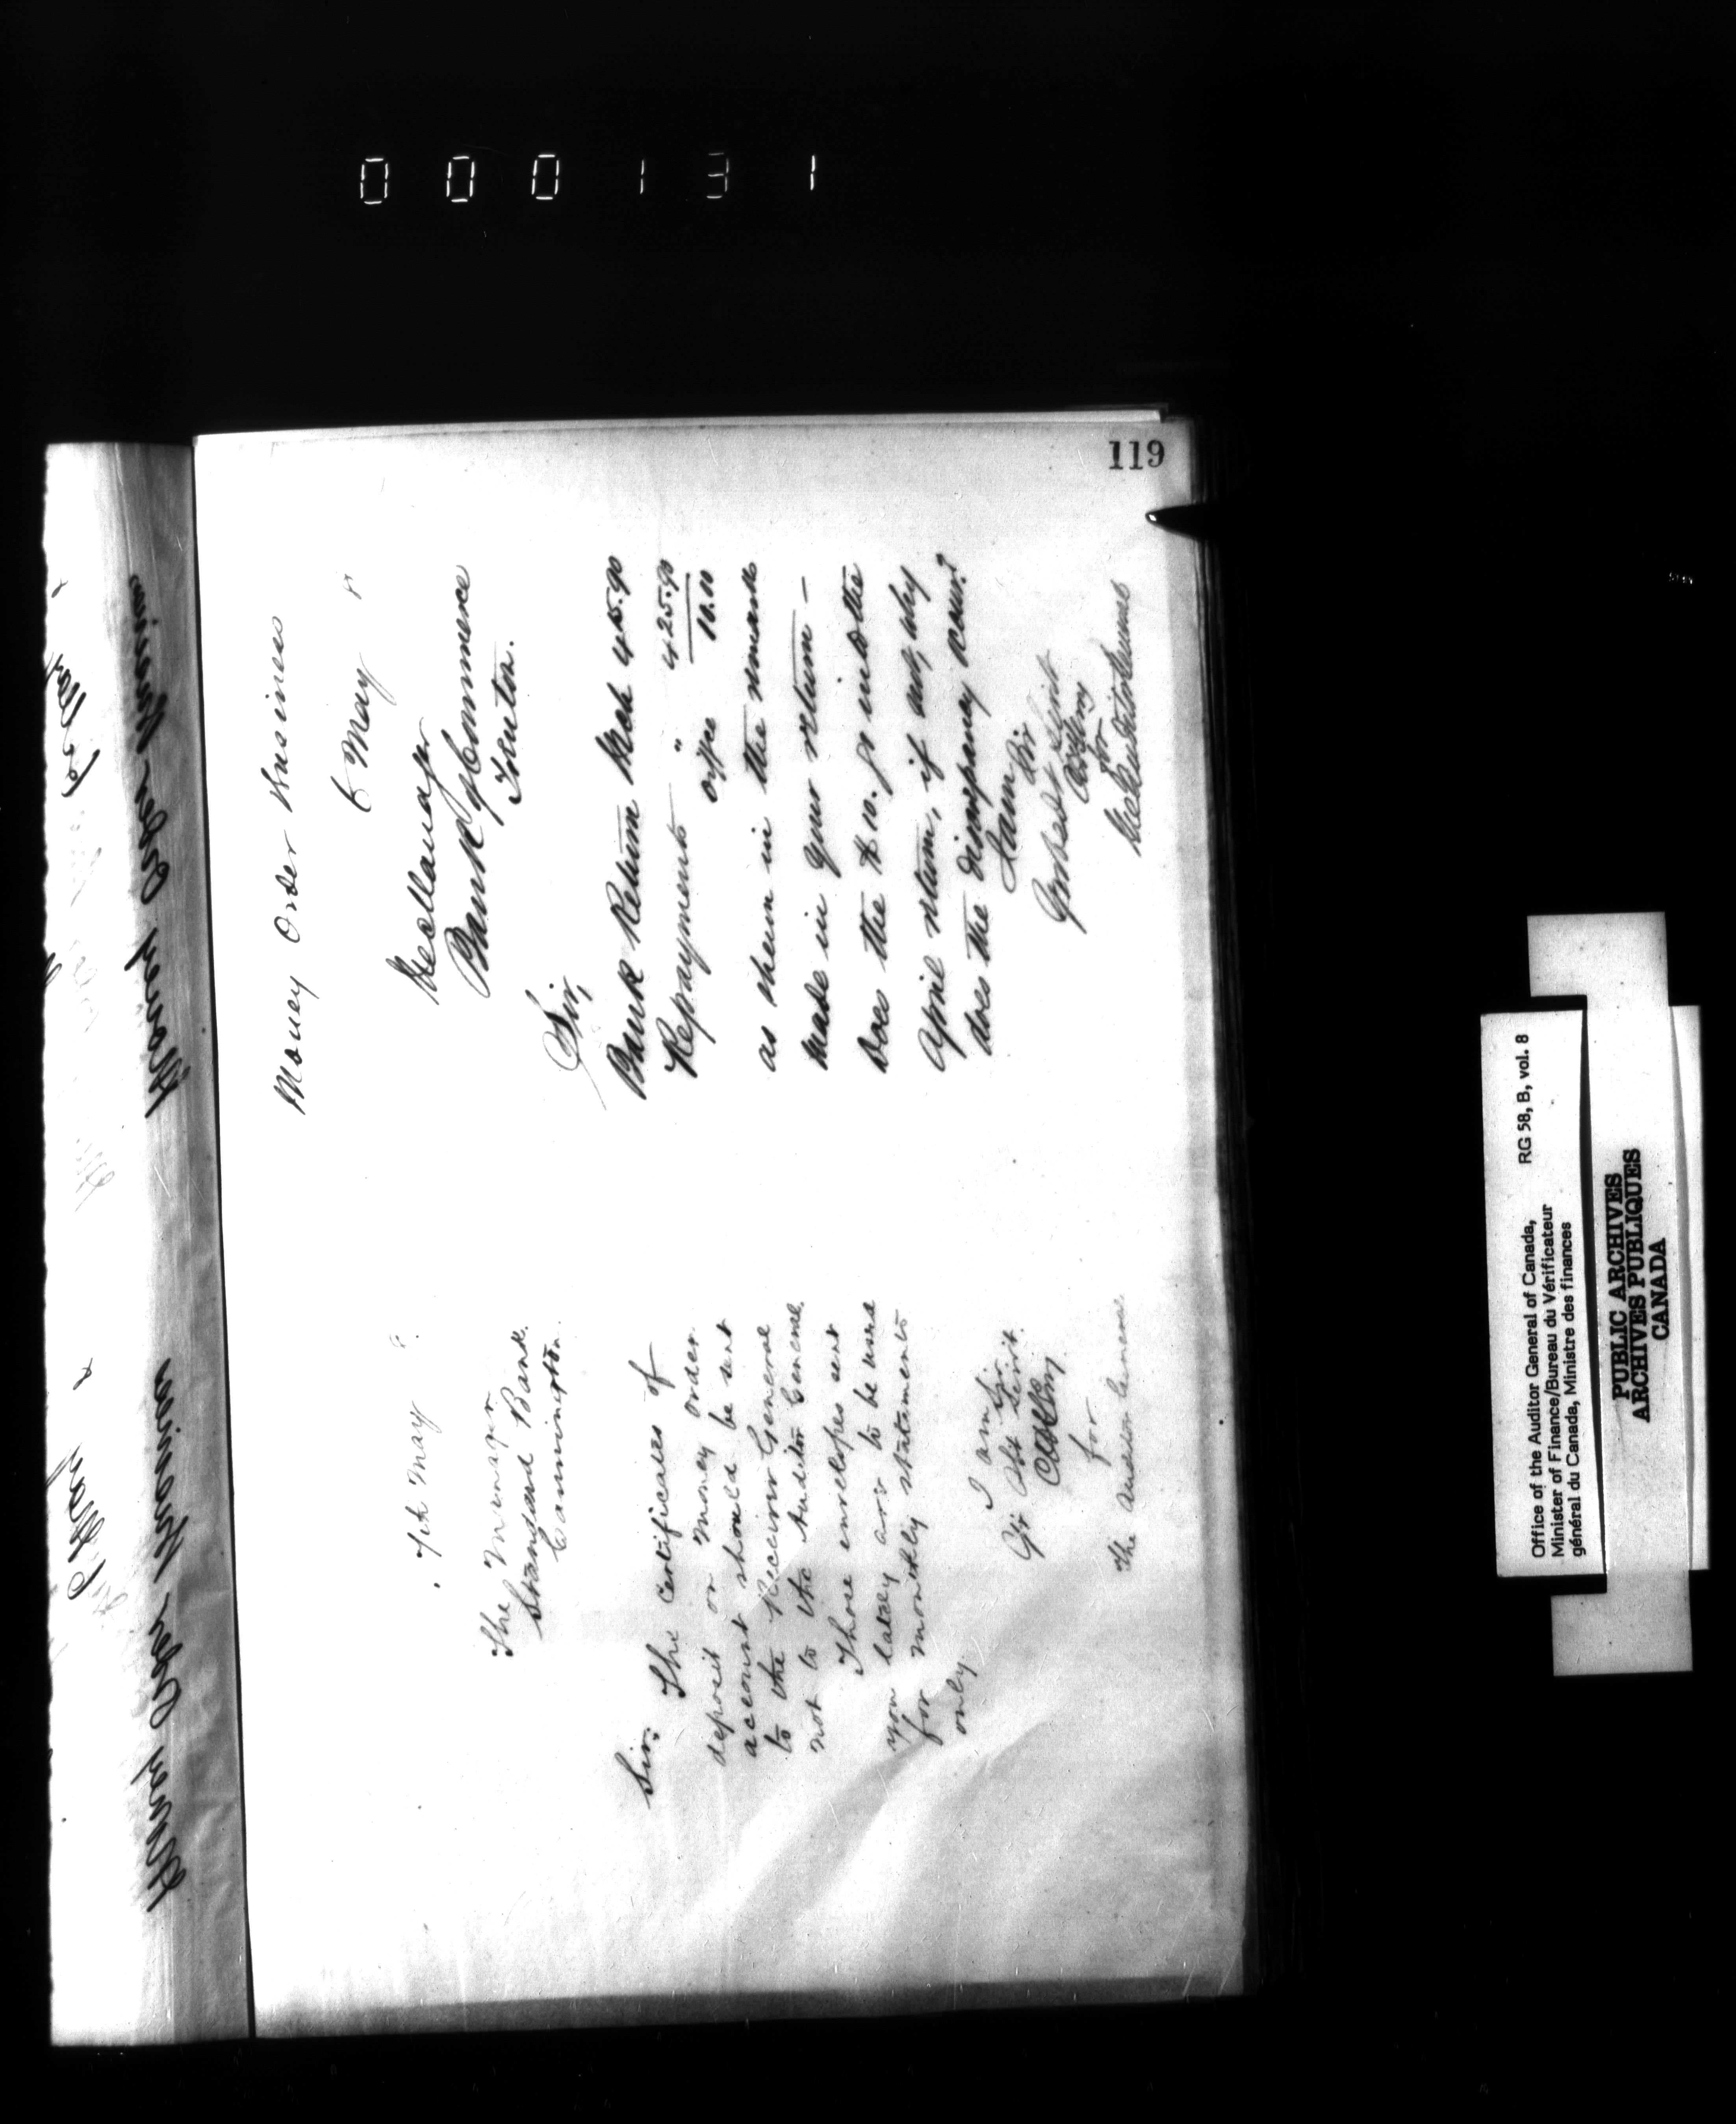 000131
119
7th May 8
The Manager
Standard Bank.
Cannington.
Sir:
The certificates of
deposit on Money Order
account should be sent
to the Receiver General
not to the Auditor General.
Those envelopes sent
you lately are to be used
for monthly statements
only.
I am Sir.
Yr Obt Servt.
for
The Auditor General
Money Order Business
6 May 8
The Manager
Bank of Commerce
Trenton.
Sir,
Bank Return Mch 435.90
Repayments " 425.90
diffce 10.00
as shewn in the remark
made in your return -
Does the $10. go into the
April return, if not, why
does the discrepancy occur?
I am Sir
Yr obedt Servt
for
The Auditor General
Money Order Business
Money Order Business
Office of the Auditor General of Canada,
Minister of Finance/Bureau du Vérificateur
général du Canada, Ministre des finances
RG 58, B, vol. 8
PUBLIC ARCHIVES
ARCHIVES PUBLIQUES
CANADA